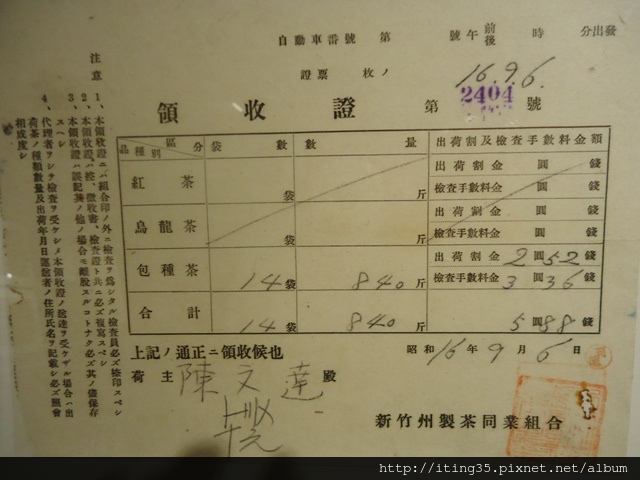 自動車番號 第 號 午 前後 時 分出發
證票 枚ノ 16.9.6.
領收證 第 2404 號
品種別 區分 袋數 數量 出荷割及檢查手數料金額
紅茶 袋 斤 出荷割金 圓 錢
檢查手數料金 圓 錢
烏龍茶 袋 斤 出荷割金 圓 錢
檢查手數料金 圓 錢
包種茶 14袋 840斤 出荷割金 2圓52錢
檢查手數料金 3圓36錢
合計 14袋 840斤 5圓88錢
上記ノ通正ニ領收候也
昭和16年9月6日
荷主 陳文達 殿
新竹州製茶同業組合
注意
1、本領收證ニハ組合印ノ外ニ檢查ヲ爲シタル檢查員必ズ捺印スベシ
2、本領收證ハ控、徵收書、檢查證ト共ニ必ズ複寫スベシ
3、本領收證ハ誤記其ノ他ノ場合モ離脫スルコトナク必ズ其ノ儘保存
スベシ
4、代理者ヲシテ檢查ヲ受ケシメ本領收證ノ送達ヲ受ケザル場合ハ出
荷茶ノ種類數量及出荷年月日運送者ノ住所氏名ヲ記載シ必ズ照會
相成度シ
http://iting35.pixnet.net/album